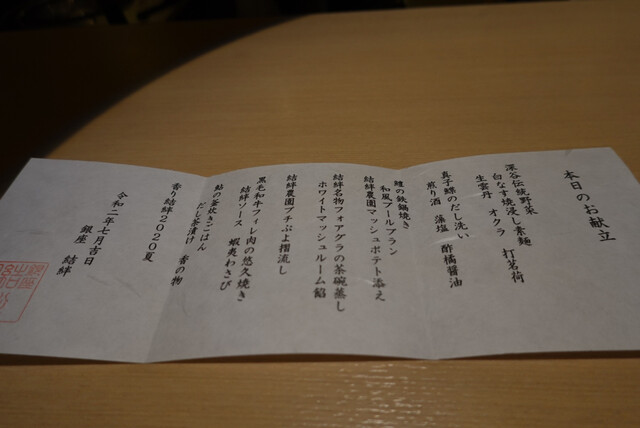 本日のお献立
深谷伝統野菜
白なす焼浸し素麺
生雲丹 オクラ 打茗荷
真子鰈のだし洗い
煎り酒 藻塩 酢橘醤油
鱧の鉄鍋焼き
和風ブールブラン
結絆農園マッシュポテト添え
結絆名物フォアグラの茶碗蒸し
ホワイトマッシュルーム餡
結絆農園プチぷよ摺流し
黒毛和牛フィレ肉の悠久焼き
結絆ソース 蝦夷わさび
鮎の釜炊きごはん
だし茶漬け 香の物
香り結絆2020夏
令和二年七月吉日
銀座 結絆